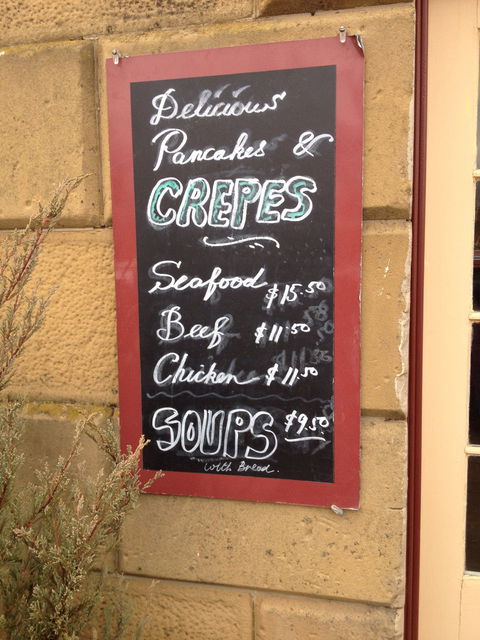 Delicious
Pancakes &
CREPES
Seafood $15.50
Beef $11.50
Chicken $11.50
SOUPS $9.50
with Bread.